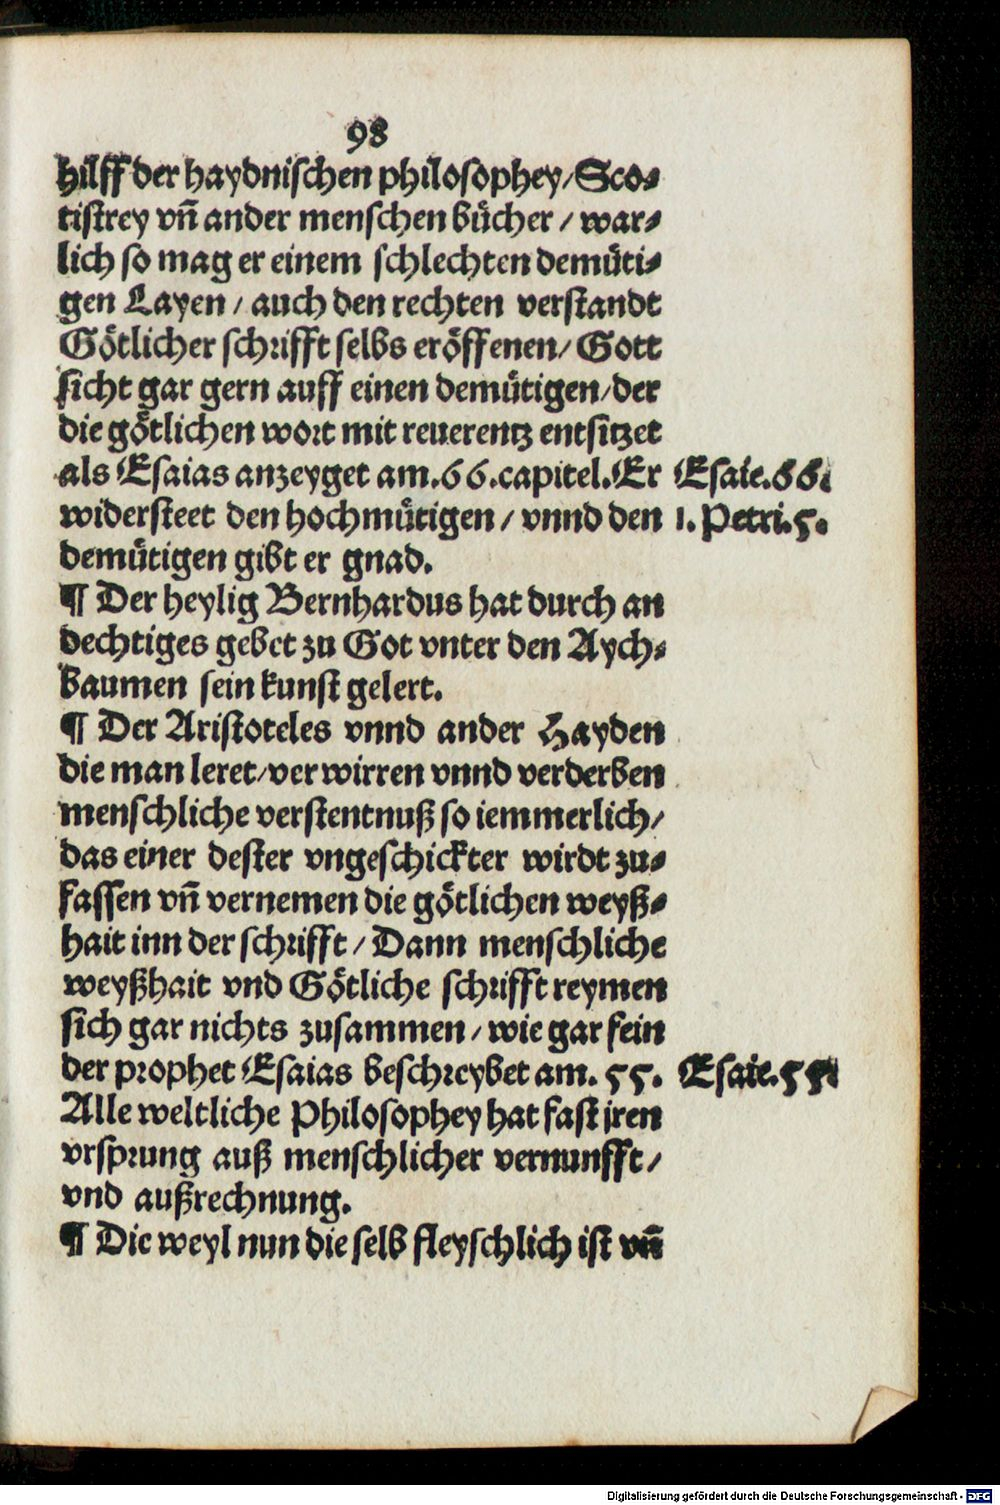 98
hilff der haydnischen philosophey/Sco⸗
tistrey vñ ander menschen bücher / war⸗
lich so mag er einem schlechten demüti⸗
gen Layen / auch den rechten verstandt
Götlicher schrifft selbs eröffenen/ Gott
sicht gar gern auff einen demütigen/der
die götlichen wort mit reuerentz entsitzet
als Esaias anzeyget am.66.capitel.Er Esaie.66.
widersteet den hochmütigen / vnnd den 1. Petri.5.
demütigen gibt er gnad.
¶ Der heylig Bernhardus hat durch an
dechtiges gebet zu Got vnter den Aych⸗
baumen sein kunst gelert.
¶ Der Aristoteles vnnd ander Hayden
die man leret/verwirren vnnd verderben
menschliche verstentnuß so iemmerlich/
das einer dester vngeschickter wirdt zu⸗
fassen vñ vernemen die götlichen weyß⸗
hait inn der schrifft / Dann menschliche
weyßhait vnd Götliche schrifft reymen
sich gar nichts zusammen / wie gar fein
der prophet Esaias beschreybet am. 55. Esaie.55.
Alle weltliche Philosophey hat fast jren
vrsprung auß menschlicher vernunfft /
vnd außrechnung.
¶ Die weyl nun die selb fleyschlich ist vñ
Digitalisierung gefördert durch die Deutsche Forschungsgemeinschaft - DFG